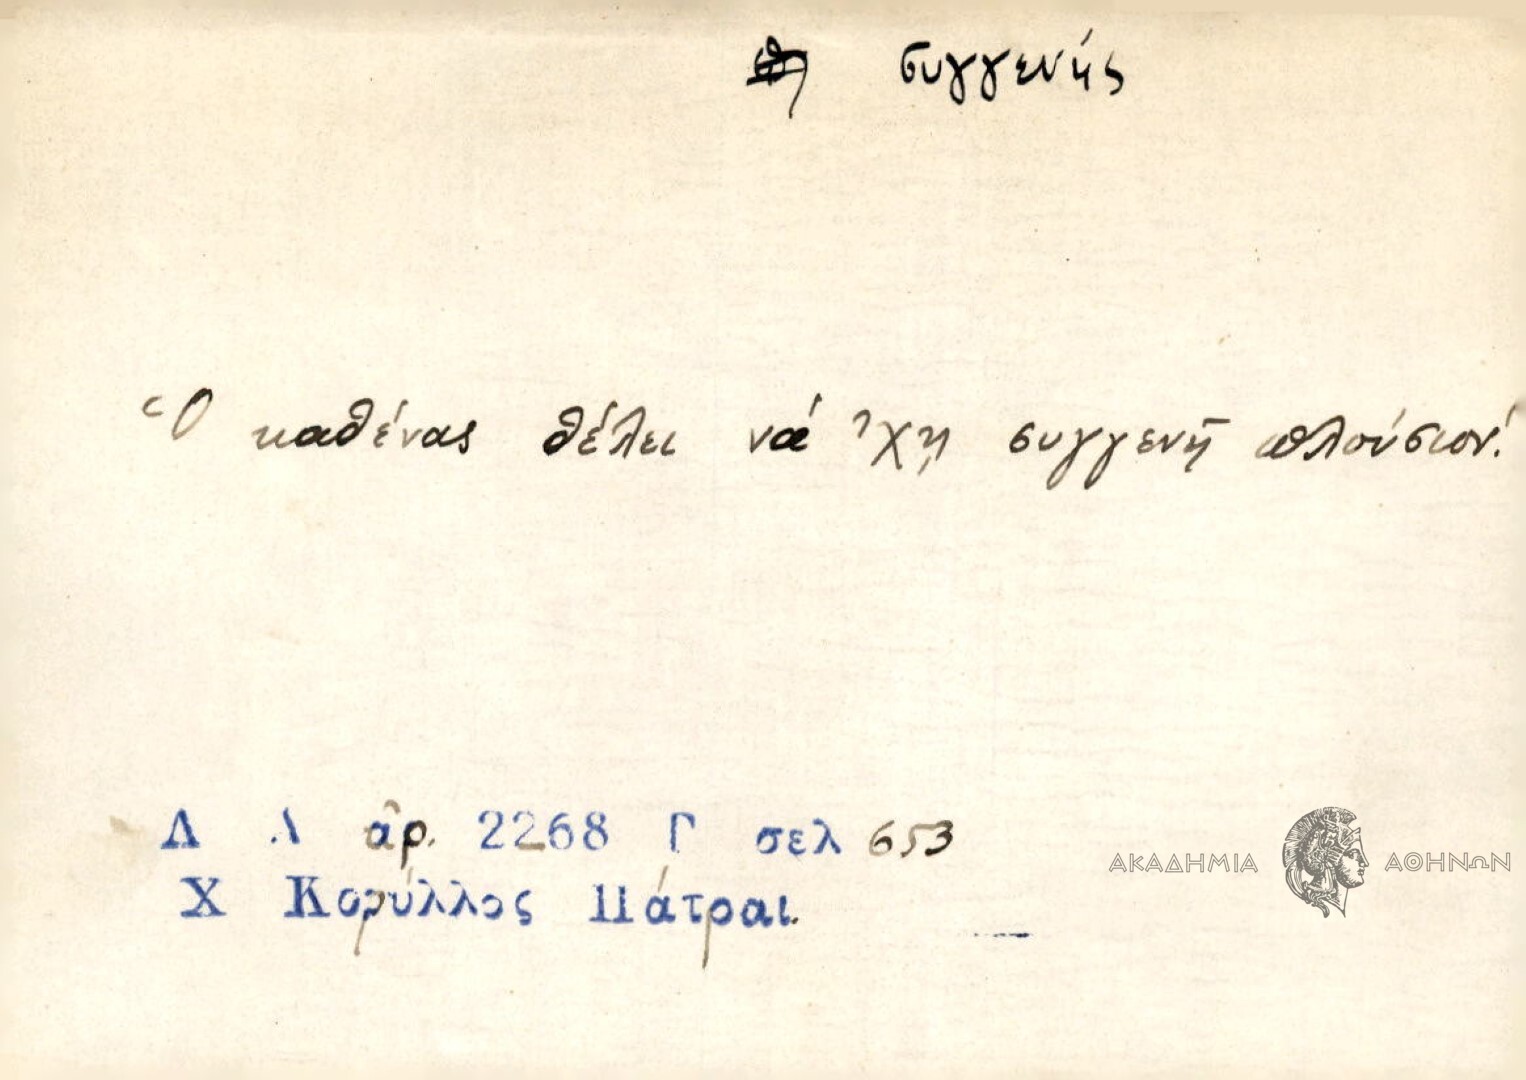 συγγενής
Ὁ καθένας θέλει νά 'χῃ συγγενῆ πλούσιον!
Λ Α ἀρ. 2268 Γ σελ 653
Χ Κορύλλος Πάτραι.
ΑΚΑΔΗΜΙΑ ΑΘΗΝΩΝ